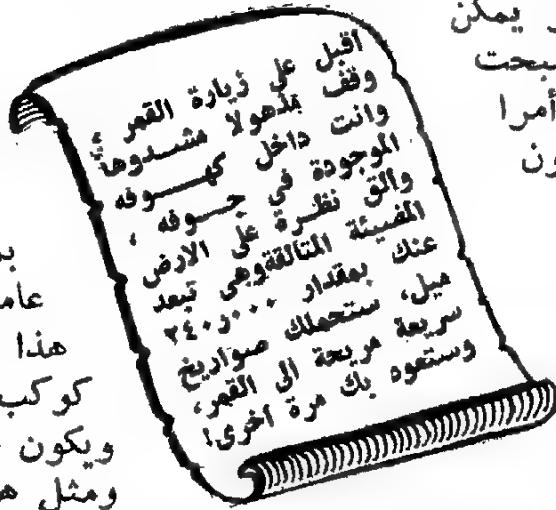 يمكن
أمرا
اقبل على زيارة القمر ،
وقف مذهولا مشدوها
وانت داخل كهوفه
الموجودة في جوفه ،
والق نظرة على الارض
المضيئة المتألقة وهي تبعد
عنك بمقدار ٢٤٠٫٠٠٠
ميل، ستحملك صواريخ
سريعة مريحة الى القمر،
وستعود بك مرة أخرى!
هذا
ويكون
ومثل